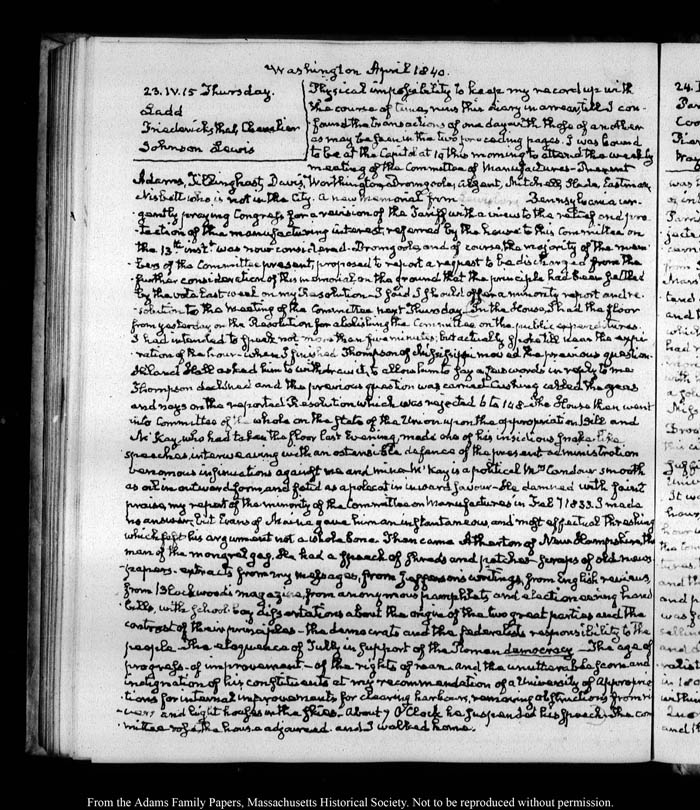 Washington April 1840.
23. IV. 15 Thursday.
Ladd
Friedrichsthal, Chevalier
Johnson Lewis
Physical impossibility to keep my record up with
the course of time, runs this diary in arrear, till I con-
found the transactions of one day with those of another
as may be seen in the two preceding pages. I was bound
to be at the Capitol at 10 this morning to attend the weekly
meeting of the Committee of Manufactures— Present
Adams, Tillinghast, Davis, Worthington, Dromgoole, Mitchell, Slade, Eastman,
Nisbett who is not in the City. A new memorial from Pennsylvania ur-
gently praying Congress for a revision of the Tariff with a view to the relief and pro-
tection of the manufacturing interest, referred by the house to this Committee on
the 13th inst. was now considered. Dromgoole, and of course the majority of the mem-
bers of the Committee present, proposed to report a request to be discharged from the
further consideration of this memorial, on the ground that the principle had been settled
by the vote last week on my Resolution— I said I should offer a minority report and re-
solution to the meeting of the Committee next Thursday. In the House, I had the floor
from yesterday on the Resolution for abolishing the Committee on the public expenditures.
I had intended to speak not more than five minutes; but actually spoke till near the expi-
ration of the hour— when I finished Thompson of Mississippi moved the previous question.
Hiland Hall asked him to withdraw it, to allow him to say a few words in reply to me
Thompson declined and the previous question was carried. Cushing called the yeas
and nays on the reported Resolution which was rejected 6 to 148— The House then went
into Committee of the whole on the State of the Union upon the appropriation Bill and
Mc Kay who had taken the floor last Evening, made one of his insidious snake like
speeches, interweaving with an ostensible defence of the present administration
venomous insinuations against me and mine. Mc Kay is a political Mrs Candour smooth
as oil in outward form and fetid as a polecat in inward savour— He damned with faint
praise, my report of the minority of the Committee on Manufactures in Feby 1833. I made
no answer; but Evans of Maine gave him an instantaneous, and most effectual threshing
which left his argument not a whole bone. Then came Atherton of New Hampshire, the
man of the mongrel gag. He had a speech of shreds and patches— scraps of old news-
papers— extracts from my messages, from Jefferson's writings, from English reviews,
from Blackwood's magazine, from anonymous pamphlets and electioneering hand
bills, with school-boy dissertations about the origin of the two great parties and the
contrast of their principles— the democrats and the federalists responsibility to the
people— The eloquence of Tully in support of the Roman democracy— The age of
progress— of improvement— of the rights of man— and the unutterable scorn and
indignation of his constituents at my recommendation of a University of Appropria-
tions for internal improvements for clearing harbours, removing obstructions from ri-
vers and light houses in the skies. About 7 O'Clock he suspended his speech. The com-
mittee rose, the house adjourned and I walked home.
24. I
From the Adams Family Papers, Massachusetts Historical Society. Not to be reproduced without permission.